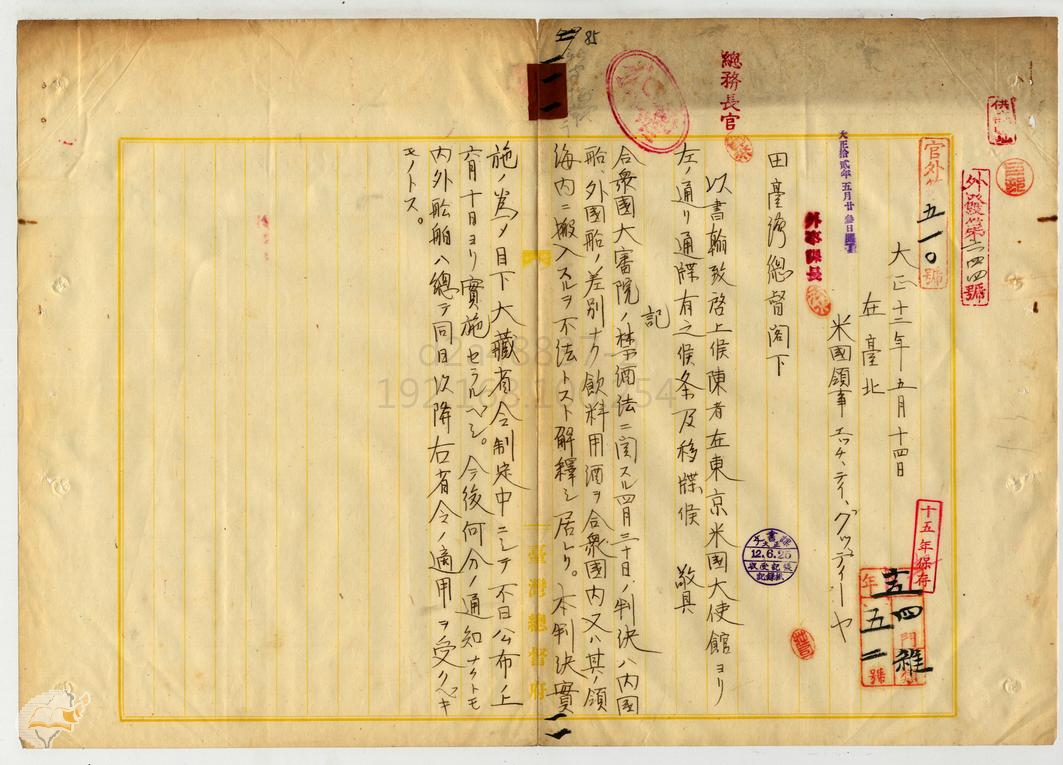 85
供閲
外發第二四四號
官外
五一〇
號
大正十二年五月十四日
在臺北
米國領事 エッチ、ティ、グッディーヤ
大正拾貳年五月廿
外事課長
總務長官
田臺灣總督閣下
以書翰致啓上候陳者在東京米國大使館ヨリ
左ノ通リ通牒有之候条及移牒候 敬具
記
合衆國大審院ノ禁酒法ニ関スル四月三十日ノ判決ハ内國
船、外國船ノ差別ナク飲料用酒ヲ合衆國内又ハ其ノ領
海内ニ搬入スルヲ不法トスト解釋シ居レリ。本判決實
施ノ為メ目下大藏省令制定中ニシテ不日公布ノ上
六月十日ヨリ實施セラルベシ。今後何分ノ通知ナクトモ
内外舩舶ハ總テ同日以降右省令ノ適用ヲ受クベキ
モノトス。
臺灣總督府
文書課
12.6.25
十五年保存
年
門
號
雜